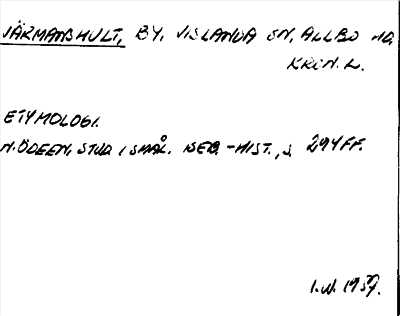 JÄRMANSHULT, BY, VISLANDA SN, ALLBO HD.
KRON. L.
ETYMOLOGI.
N. ÖDEEN, STUD. I SMÅL. BEB.-HIST., S. 294 FF.
I.W. 1937.